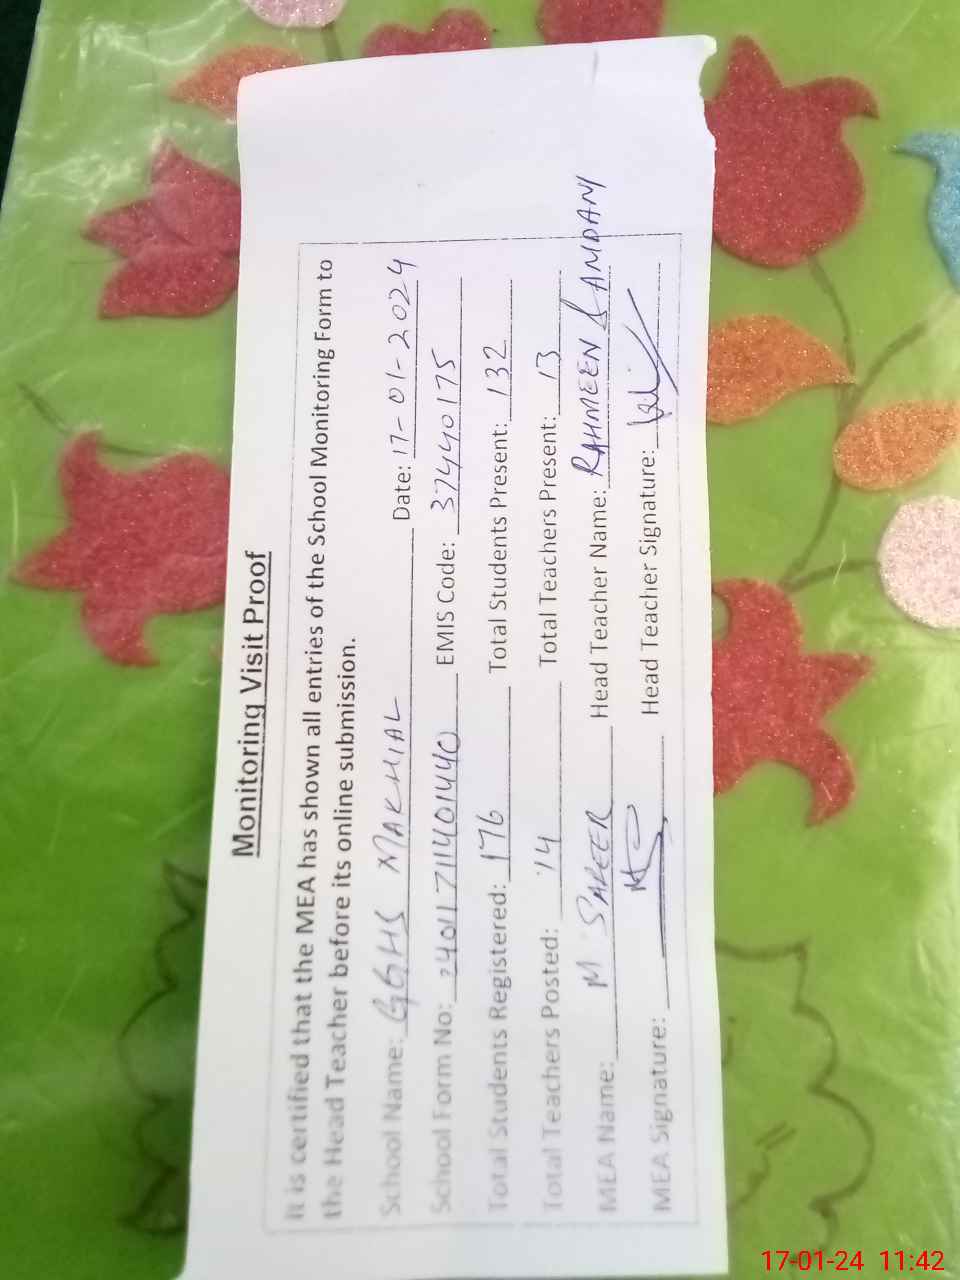 Monitoring Visit Proof
It is certified that the MEA has shown all entries of the School Monitoring Form to
the Head Teacher before its online submission.
School Name: GGHS MAKHIAL Date: 17-01-2024
School Form No: 240117114401440 EMIS Code: 37440175
Total Students Registered: 176 Total Students Present: 132
Total Teachers Posted: 14 Total Teachers Present: 13
MEA Name: M SAFEER Head Teacher Name: RAHMEEN
MEA Signature: Head Teacher Signature:
17-01-24 11:42